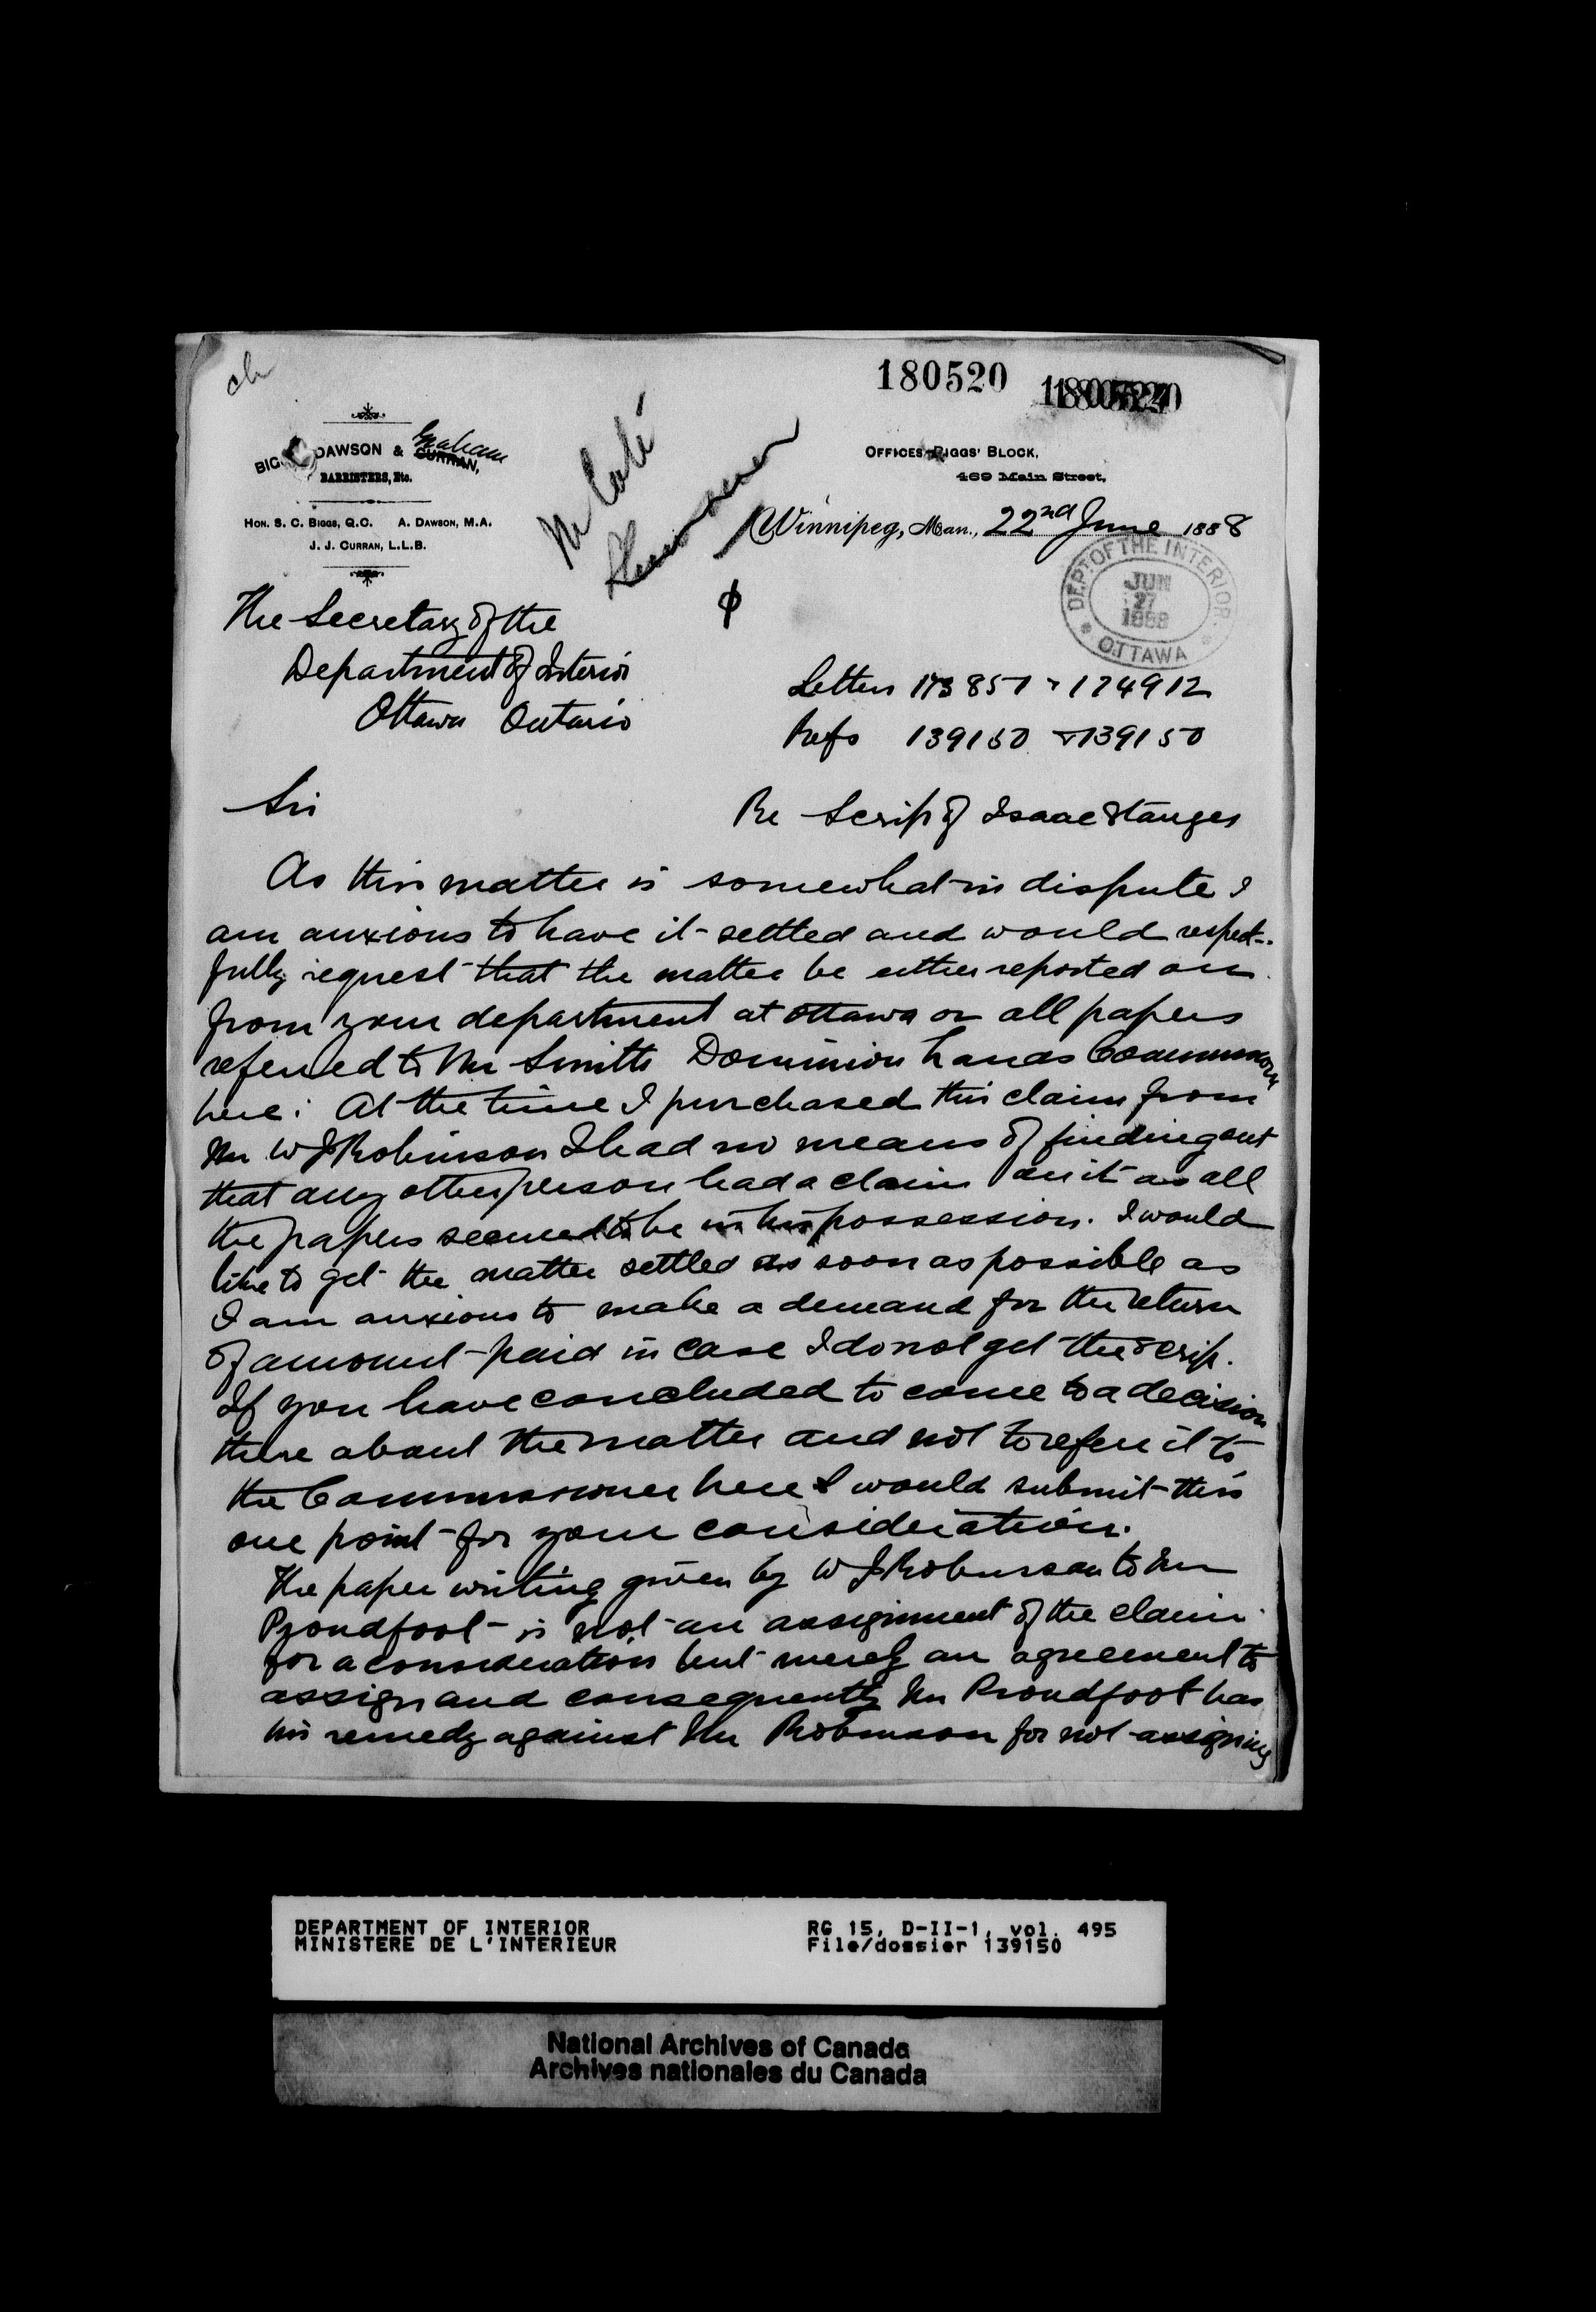 ch
180520
BIGGS, DAWSON & CURRAN, Graham
BARRISTERS, Etc.
HON. S. C. BIGGS, Q.C. A. DAWSON, M.A.
J. J. CURRAN, L.L.B.
OFFICES, BIGGS' BLOCK,
469 Main Street,
Winnipeg, Man., 22nd June 1888
DEPT. OF THE INTERIOR
JUN
27
1888
OTTAWA
The Secretary of the
Department of Interior
Ottawa Ontario
Letters 173857 & 174912
Refs 139150 & 139150
Sir
Re Scrip of Isaac Stanger
As this matter is somewhat in dispute I
am anxious to have it settled and would respect-
fully request that the matter be either reported on
from your department at Ottawa or all papers
referred to Mr Smith Dominion Lands Commission
here: At the time I purchased this claim from
Mr W J Robinson I had no means of finding out
that any other person had a claim on it as all
the papers seemed to be in his possession. I would
like to get the matter settled as soon as possible as
I am anxious to make a demand for the return
of amount paid in case I do not get the scrip.
If you have concluded to come to a decision
there about the matter and not to refer it to
the Commissioner here I would submit this
one point for your consideration.
The paper writing given by W J Robinson to Mr
Proudfoot is not an assignment of the claim
for a consideration but merely an agreement to
assign and consequently Mr Proudfoot has
his remedy against Mr Robinson for not assigning
DEPARTMENT OF INTERIOR
MINISTERE DE L'INTERIEUR
RG 15, D-II-1, vol. 495
File/dossier 139150
National Archives of Canada
Archives nationales du Canada